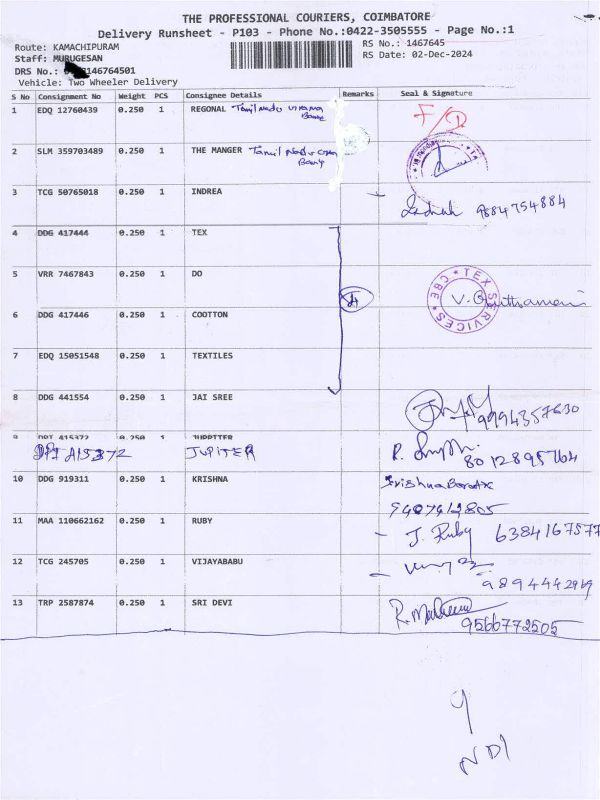 THE PROFESSIONAL COURIERS, COIMBATORE
Delivery Runsheet - P103 - Phone No.:0422-3505555 - Page No.:1
Route: KAMACHIPURAM RS No.: 1467645
Staff: MURUGESAN RS Date: 02-Dec-2024
DRS No.: 146764501
Vehicle: Two Wheeler Delivery
S No Consignment No Weight PCS Consignee Details Remarks Seal & Signature
1 EDQ 12760439 0.250 1 REGONAL Tamil Nadu Grama Bank
2 SLM 359703489 0.250 1 THE MANGER Tamil Nadu Bank
3 TCG 50765018 0.250 1 INDREA 9884754884
4 DDG 417444 0.250 1 TEX
5 VRR 7467843 0.250 1 DO TEX SERVICES CBE
6 DDG 417446 0.250 1 COOTTON
7 EDQ 15051548 0.250 1 TEXTILES
8 DDG 441554 0.250 1 JAI SREE 9994357630
9 DPI 415372 0.250 1 JUPITER
DPI 415372 JUPITER 8012895764
10 DDG 919311 0.250 1 KRISHNA
11 MAA 110662162 0.250 1 RUBY J. Ruby 6384167577
12 TCG 245705 0.250 1 VIJAYABABU
9894442949
13 TRP 2587874 0.250 1 SRI DEVI 9566772505
9